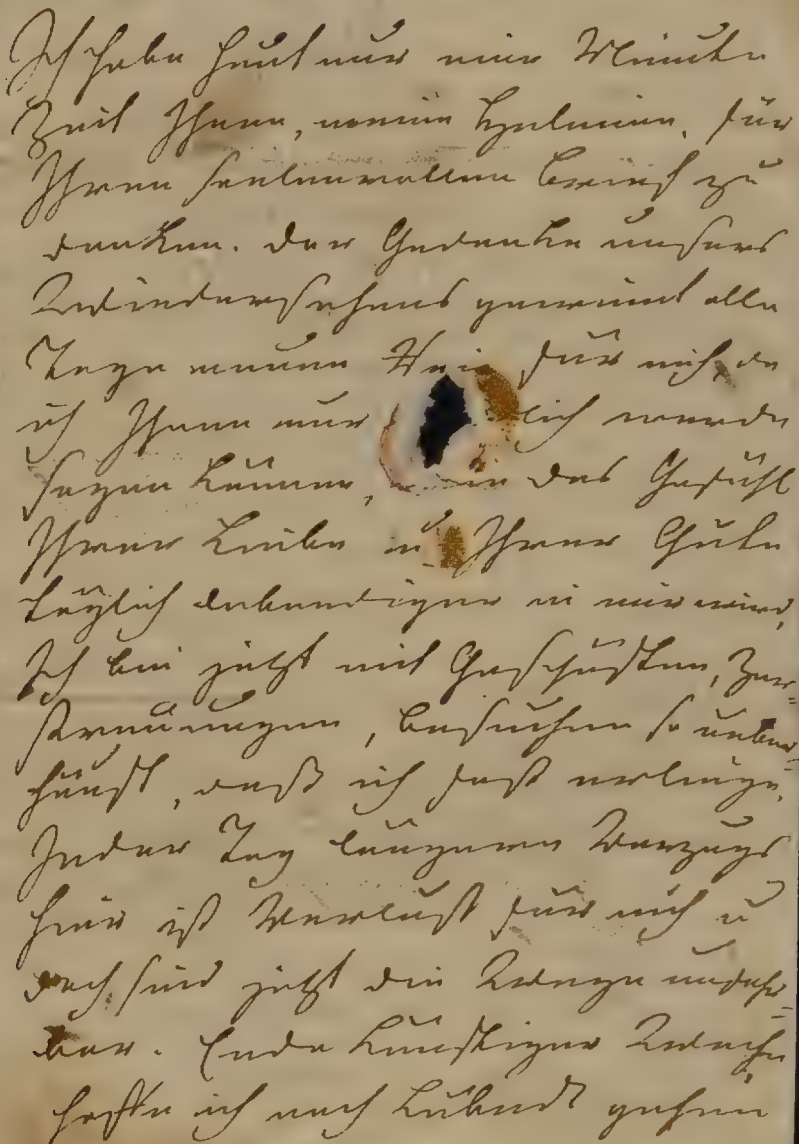 Ich habe heut nur eine Minute
Zeit Ihnen, meine Helmine, für
Ihren seelenvollen Brief zu
danken. Der Gedanke unsers
Wiedersehens gewinnt alle
Tage neuen Rei für mich, da
ich Ihnen nur lich werde
sagen können, das Gefühl
Ihrer Liebe u Ihrer Güte
täglich lebendiger in mir wird,
Ich bin jetzt mit Geschäften, Zer=
streuungen, Besuchen so ueber=
häuft, daß ich fast erliege.
Jeder Tag längeren Verzugs
hier ist Verlust für mich u
doch sind jetzt die Wege unfahr=
bar. Ende künftiger Woche
hoffe ich nach gehen